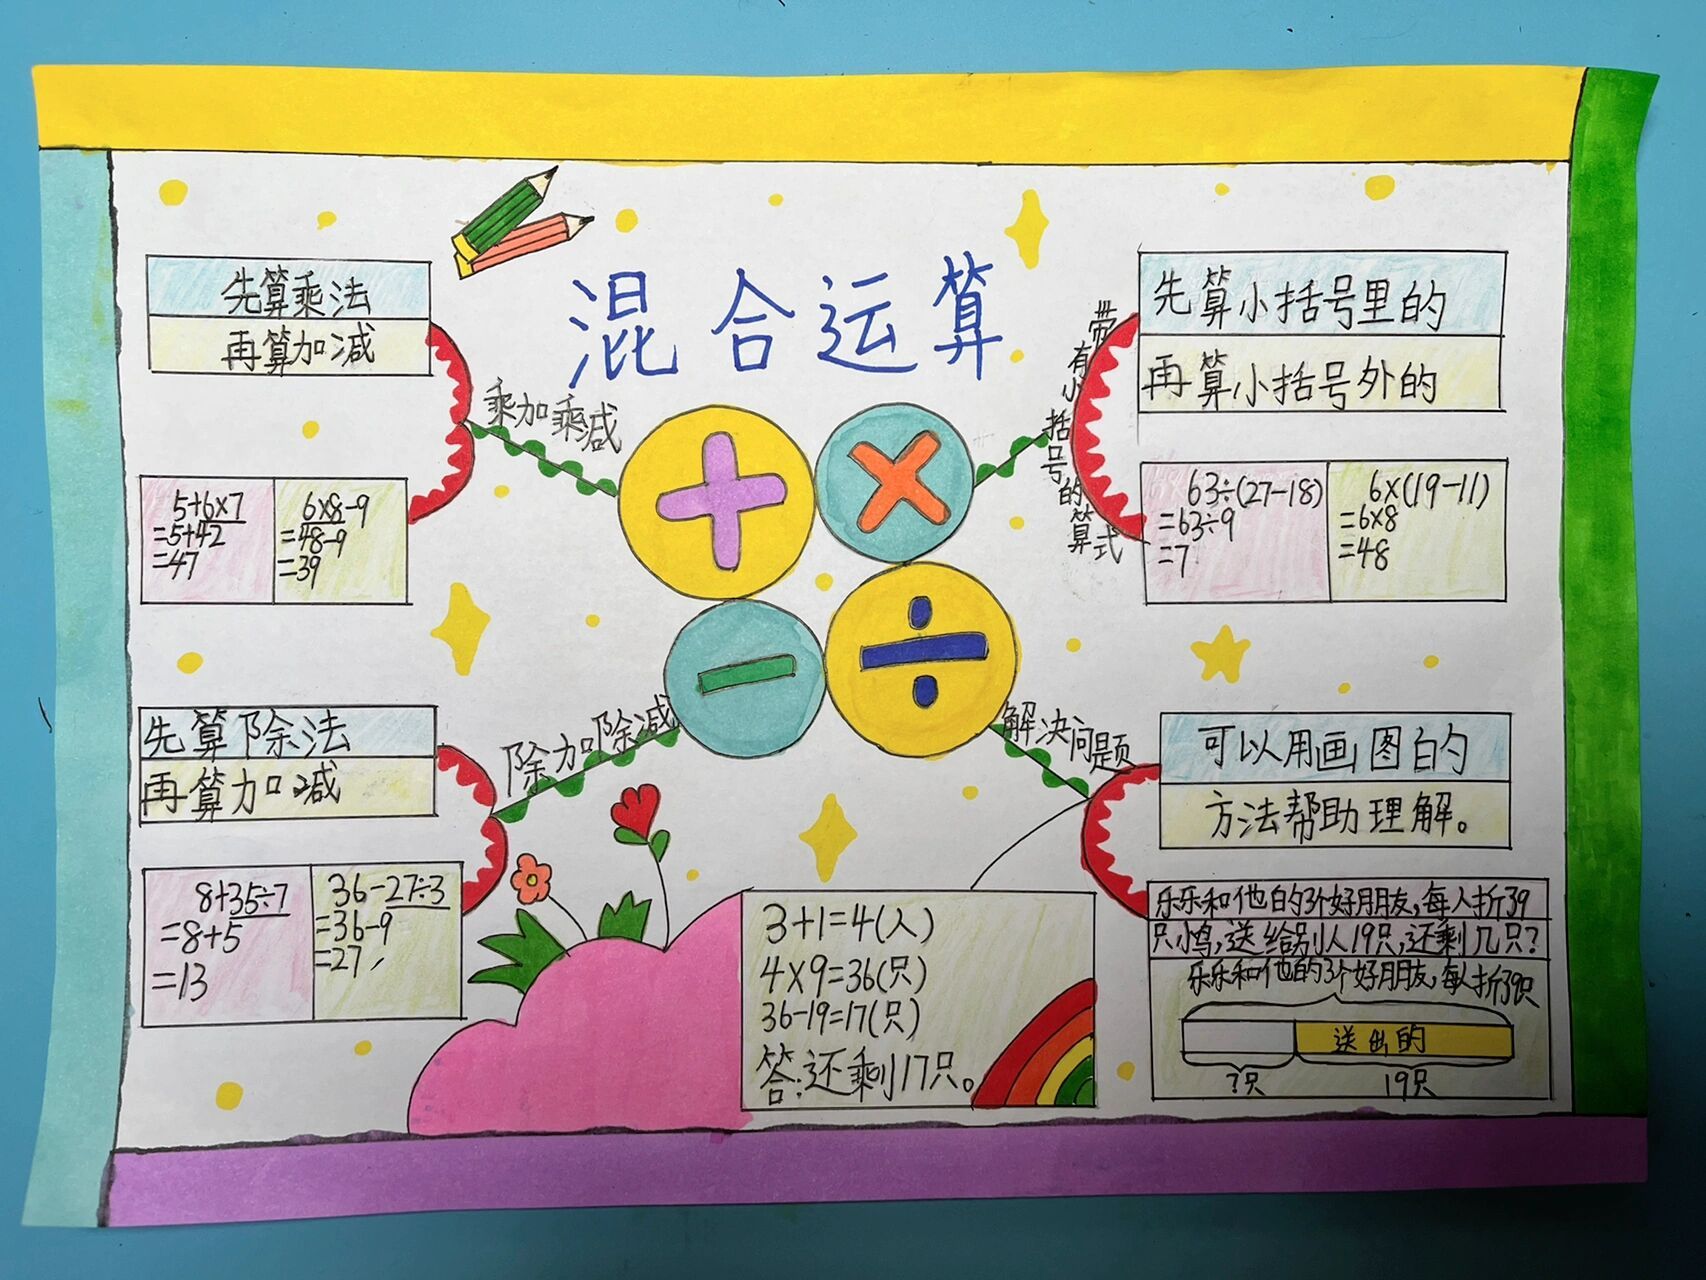 混合运算
先算乘法
再算加减
乘加乘减
5+6×7
=5+42
=47
6×8-9
=48-9
=39
带有小括号的算式
先算小括号里的
再算小括号外的
63÷(27-18)
=63÷9
=7
6×(19-11)
=6×8
=48
先算除法
再算加减
除加除减
8+35÷7
=8+5
=13
36-27÷3
=36-9
=27
解决问题
可以用画图的
方法帮助理解。
乐乐和他的3个好朋友,每人折39
只小鸟,送给别人19只,还剩几只?
乐乐和他的3个好朋友,每人折39只
送出的
?只
19只
3+1=4(人)
4×9=36(只)
36-19=17(只)
答:还剩17只。